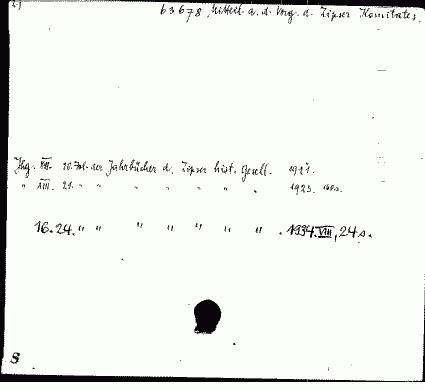 63678, Mitteil. a. d. Verg. d. Zipser Komitates.
Jhg. VIII. 20. Jbd. der Jahrbücher d. Zipser hist. Gesell. 1921.
" XIII. 21. " " " " " " " 1923.
16. 24. " " " " " " " . 1934. VIII, 24 s.
S